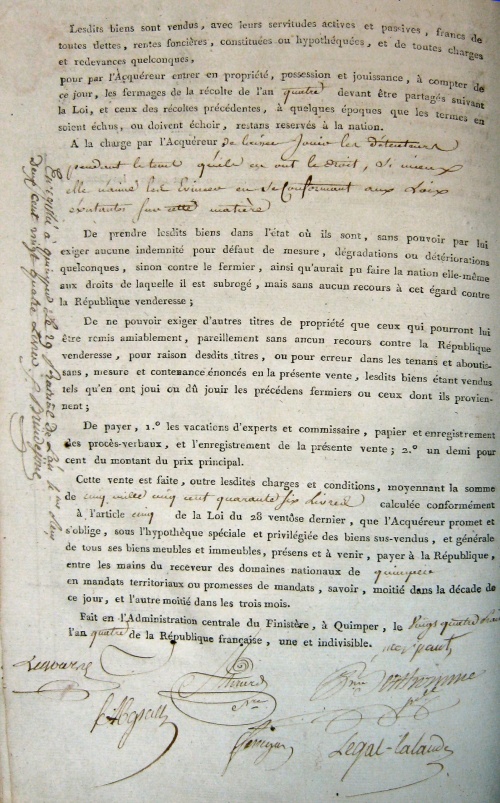 Lesdits biens sont vendus, avec leurs servitudes actives et passives, francs de
toutes dettes, rentes foncières, constituées ou hypothéquées, et de toutes charges
et redevances quelconques,
pour par l'Acquéreur entrer en propriété, possession et jouissance, à compter de
ce jour, les fermages de la récolte de l'an quatre devant être partagés suivant
la Loi, et ceux des récoltes précédentes, à quelques époques que les termes en
soient échus, ou doivent échoir, restans reservés à la nation.
A la charge par l'Acquéreur de laisser Jouir les Détenteurs
pendant le tems qu'ils en ont le Droit, Si mieux
elle n'aime les Evincer en se Conformant aux Loix
existantes sur cette matière
De prendre lesdits biens dans l'état où ils sont, sans pouvoir par lui
exiger aucune indemnité pour défaut de mesure, dégradations ou détériorations
quelconques, sinon contre le fermier, ainsi qu'aurait pu faire la nation elle-même
aux droits de laquelle il est subrogé, mais sans aucun recours à cet égard contre
la République venderesse;
De ne pouvoir exiger d'autres titres de propriété que ceux qui pourront lui
être remis amiablement, pareillement sans ancun recours contre la République
venderesse, pour raison desdits titres, ou pour erreur dans les tenans et aboutis-
sans, mesure et contenance énoncés en la présente vente, lesdits biens étant vendus
tels qu'en ont joui ou dû jouir les précédens fermiers ou ceux dont ils provien-
nent;
De payer, 1.° les vacations d'experts et commissaire, papier et enregistrement
des procès-verbaux, et l'enregistrement de la présente vente; 2.° un demi pour
cent du montant du prix principal.
Cette vente est faite, outre lesdites charges et conditions, moyennant la somme
de cinq mille cinq cent quarante six livres calculée conformément
à l'article cinq de la Loi du 28 ventôse dernier, que l'Acquéreur promet et
s'oblige, sous l'hypothèque spéciale et privilégiée des biens sus-vendus, et générale
de tous ses biens meubles et immeubles, présens et à venir, payer à la République,
entre les mains du receveur des domaines nationaux de quimper
en mandats territoriaux ou promesses de mandats, savoir, moitié dans la décade de
ce jour, et l'autre moitié dans les trois mois.
Fait en l'Administration centrale du Finistère, à Quimper, le Vingt quatre
l'an quatre de la République française, une et indivisible.
Legal-lalande
Enregistré à quimper le 29
Deux cent vingt quatre Livres